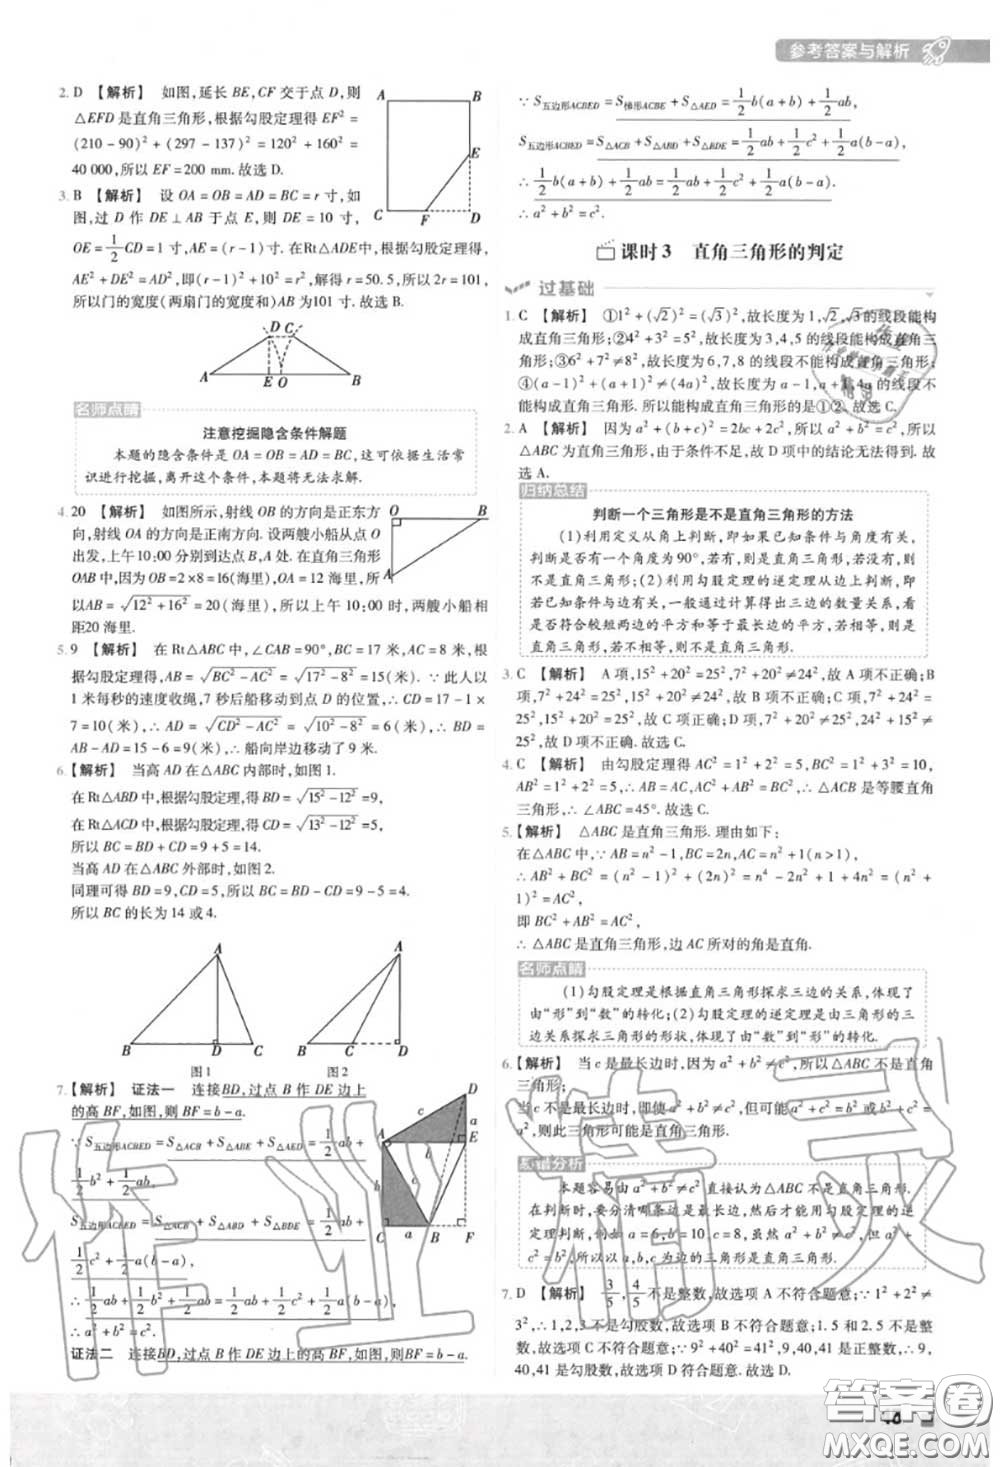 参考答案与解析
2. D 【解析】 如图,延长 BE,CF 交于点 D,则
△EFD 是直角三角形,根据勾股定理得 EF²=
(210-90)²+(297-137)²=120²+160²=
40 000,所以 EF=200 mm.故选 D.
3. B 【解析】 设 OA=OB=AD=BC=r 寸,如
图,过 D 作 DE⊥AB 于点 E,则 DE=10 寸,
OE=1/2CD=1 寸,AE=(r-1)寸.在Rt△ADE中,根据勾股定理得,
AE²+DE²=AD²,即(r-1)²+10²=r²,解得 r=50.5,所以2r=101,
所以门的宽度(两扇门的宽度和)AB为101 寸.故选 B.
名师点睛
注意挖掘隐含条件解题
本题的隐含条件是 OA=OB=AD=BC,这可依据生活常
识进行挖掘,离开这个条件,本题将无法求解.
4. 20 【解析】 如图所示,射线 OB 的方向是正东方
向,射线 OA 的方向是正南方向.设两艘小船从点 O
出发,上午10:00 分别到达点 B,A 处.在直角三角形
OAB中,因为 OB=2×8=16(海里),OA=12 海里,所
以AB=√12²+16²=20(海里),所以上午 10:00 时,两艘小船相
距20 海里.
5. 9 【解析】 在 Rt△ABC 中,∠CAB=90°,BC=17 米,AC=8 米,
根据勾股定理得 AB=√BC²-AC²=√17²-8²=15(米).∵ 此人以
1 米每秒的速度收绳,7 秒后船移动到点 D 的位置,∴ CD=17-1×
7=10(米),∴ AD=√CD²-AC²=√10²-8²=6(米),∴ BD=
AB-AD=15-6=9(米),∴ 船向岸边移动了 9 米.
6. 【解析】 当高 AD 在△ABC 内部时,如图 1.
在 Rt△ABD 中,根据勾股定理,得 BD=√15²-12²=9,
在 Rt△ACD 中,根据勾股定理,得 CD=√13²-12²=5,
所以 BC=BD+CD=9+5=14.
当高 AD 在△ABC 外部时,如图 2.
同理可得 BD=9,CD=5,所以 BC=BD-CD=9-5=4.
所以 BC 的长为 14 或 4.
图 1
图 2
7. 【解析】 证法一 连接BD,过点 B 作 DE 边上
的高 BF,如图,则 BF=b-a.
∵ S五边形ACBED=S△ACB+S△ABE+S△AED=1/2ab+
1/2b²+1/2ab,
S五边形ACBED=S△ACB+S△ABD+S△BDE=1/2ab+
1/2c²+1/2a(b-a),
∴ 1/2ab+1/2b²+1/2ab=1/2ab+1/2c²+1/2a(b-a),
∴ a²+b²=c².
证法二 连接BD,过点 B 作 DE 边上的高 BF,如图,则BF=b-a.
∵ S五边形ACBED=S梯形ACBE+S△AED=1/2b(a+b)+1/2ab,
S五边形ACBED=S△ACB+S△ABD+S△BDE=1/2ab+1/2c²+1/2a(b-a),
∴ 1/2b(a+b)+1/2ab=1/2ab+1/2c²+1/2a(b-a),
∴ a²+b²=c².
课时 3 直角三角形的判定
过基础
1. C 【解析】 ①1²+(√2)²=(√3)²,故长度为 1,√2,√3的线段能构
成直角三角形;②4²+3²=5²,故长度为 3,4,5 的线段能构成直角三
角形;③6²+7²≠8²,故长度为 6,7,8 的线段不能构成直角三角形;
④(a-1)²+(a+1)²≠(4a)²,故长度为 a-1,a+1,4a 的线段不
能构成直角三角形.所以能构成直角三角形的是①②.故选 C.
2. A 【解析】 因为 a²+(b+c)²=2bc+2c²,所以 a²+b²=c²,所以
△ABC为直角三角形,由于条件不足,故 D 项中的结论无法得出.故
选 A.
归纳总结
判断一个三角形是不是直角三角形的方法
(1)利用定义从角上判断,即如果已知条件与角度有关,
判断是否有一个角度为 90°,若有,则是直角三角形,若没有,则
不是直角三角形;(2)利用勾股定理的逆定理从边上判断,即
若已知条件与边有关,一般通过计算得出三边的数量关系,看
是否符合较短两边的平方和等于最长边的平方,若相等,则是
直角三角形,若不相等,则不是直角三角形.
3. C 【解析】 A 项,15²+20²=25²,7²+24²=25²,故 A 项不正确;B
项,7²+24²=25²,15²+20²≠24²,故 B 项不正确;C 项,7²+24²=
25²,15²+20²=25²,故 C 项正确;D 项,7²+20²≠25²,24²+15²≠
25²,故 D 项不正确.故选 C.
4. C 【解析】 由勾股定理得 AC²=1²+2²=5,BC²=1²+3²=10,
AB²=1²+2²=5,∴ AB=AC,AC²+AB²=BC²,∴ △ACB 是等腰直角
三角形,∴ ∠ABC=45°.故选 C.
5. 【解析】 △ABC 是直角三角形.理由如下:
在△ABC 中,∵ AB=n²-1,BC=2n,AC=n²+1(n>1),
∴ AB²+BC²=(n²-1)²+(2n)²=n⁴-2n²+1+4n²=(n²+
1)²=AC²,
即 BC²+AB²=AC²,
∴ △ABC 是直角三角形,边 AC 所对的角是直角.
名师点睛
(1)勾股定理是根据直角三角形探求三边的关系,体现了
由“形”到“数”的转化;(2)勾股定理的逆定理是由三角形的三
边关系探求三角形的形状,体现了由“数”到“形”的转化.
6. 【解析】 当 c 是最长边时,因为 a²+b²≠c²,所以△ABC不是直角
三角形;
当 c 不是最长边时,即使 a²+b²≠c²,但可能 a²+c²=b² 或 b²+c²=
a²,则此三角形可能是直角三角形.
易错分析
本题容易由 a²+b²≠c² 直接认为△ABC 不是直角三角形.
在判断时,要分清哪条边是最长边,然后才能用勾股定理的逆
定理判断,例如 a=6,b=10,c=8,虽然 a²+b²≠c²,但 a²+
c²=b²,所以以 a,b,c 为边的三角形是直角三角形.
7. D 【解析】 3/5,4/5不是整数,故选项 A 不符合题意;∵ 1²+2²≠
3²,∴ 1,2,3 不是勾股数,故选项 B 不符合题意;1.5 和 2.5 不是整
数,故选项 C 不符合题意;∵ 9²+40²=41²,9,40,41 是正整数,∴ 9,
40,41 是勾股数,故选项 D 符合题意.故选 D.
作业精灵
答案圈
MXQE.COM